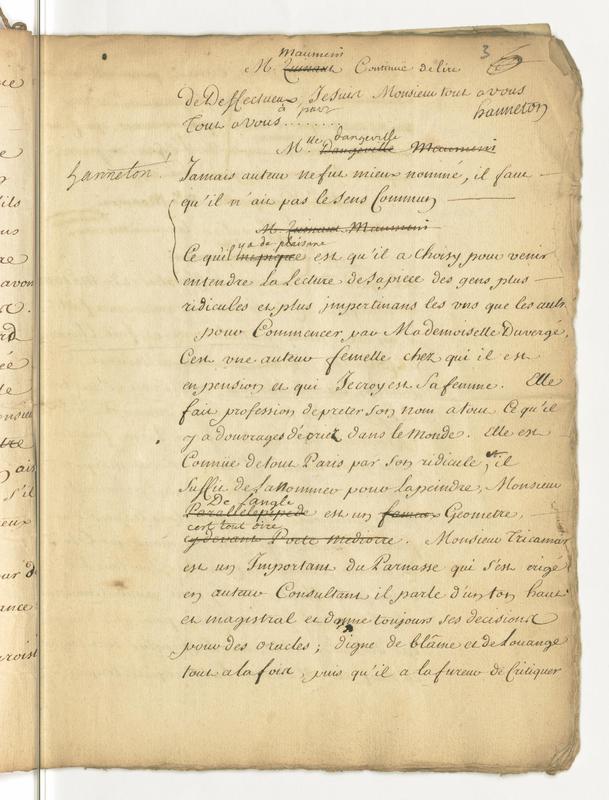 3
Maumeni
M. Quinaut Continue de lire
de Deffectueux, Je suis Monsieur tout a vous
hanneton
à part
Tout a vous . . . . . . .
dangeville
M.lle Dangeville Maumeni
hanneton!
Jamais auteur ne fut mieux nommé, il faut
qu'il n'ait pas le sens Commun
M. Quinaut Maumeni
y a de plaisant
Ce qu'il est qu'il a choisy pour venir
entendre la Lecture de sa piece des gens plus
ridicules et plus impertinans les uns que les autr.
pour Commencer par Mademoiselle Duvergé,
C'est une auteur femelle chez qui il est
en pension et qui Je croy est sa femme. Elle
fait profession de preter son nom a tout Ce qu'il
y a d'ouvrages décriéz dans le Monde. Elle est
Connüe de tout Paris par son ridicule, et il
suffit de la Nommer pour la peindre, Monsieur
De l'angle
Parallelepipede est un fameux Geometre,
cest tout dire
cydevant Poete mediocre. Monsieur Tricamar
est un Important du Parnasse qui s'est erigé
en auteur Consultant il parle d'un ton haut
et magistral et donne toujours ses decisions
pour des oracles ; digne de blâme et de Louange
tout a la fois, puis qu'il a la fureur de Critiquer